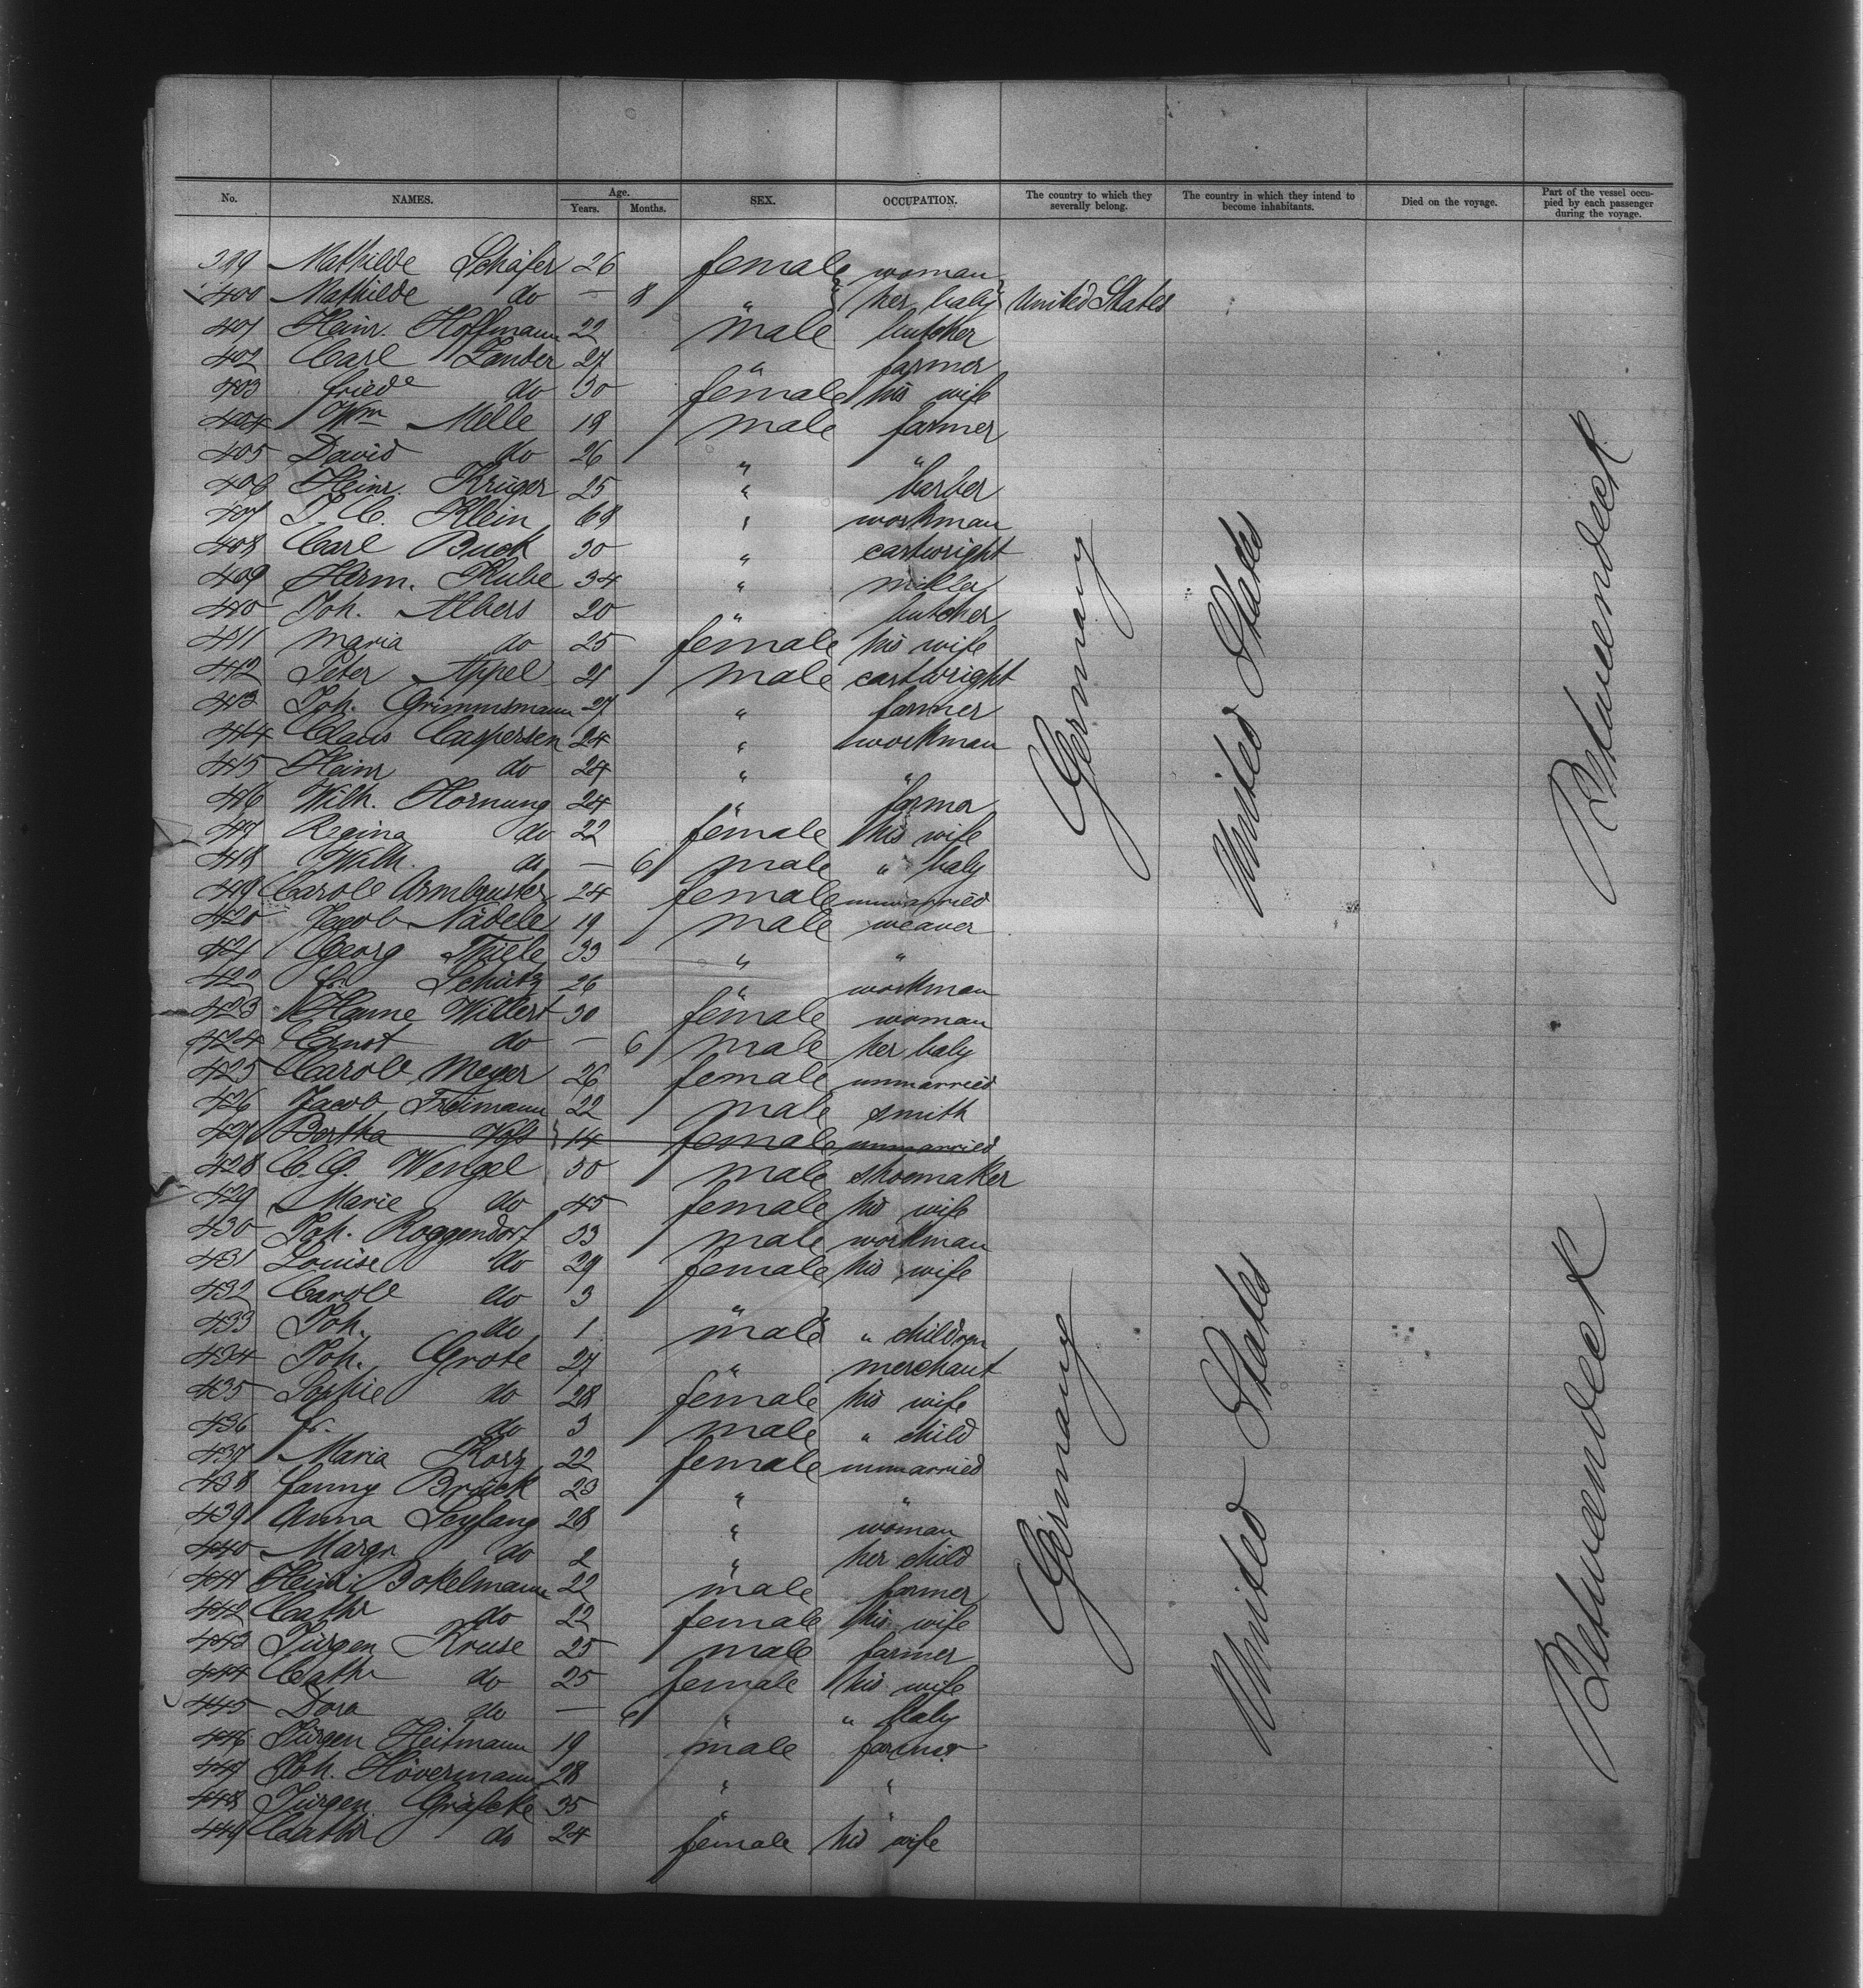 No. NAMES. Age. Years. Months. SEX. OCCUPATION. The country to which they severally belong. The country in which they intend to become inhabitants. Died on the voyage. Part of the vessel occupied by each passenger during the voyage.
399 Mathilde Schäfer 26 female woman
400 Mathilde do — 8 " her baby United States
401 Heinr. Hoffmann 22 male butcher
402 Carl 27 " farmer
403 Friede do 30 female his wife
404 Wm Melle 19 male farmer
405 David do 26 " "
406 Heinr. Krüger 25 " barber
407 Klein 68 " workman
408 Carl Buck 30 " cartwright
409 Herm. Kube 34 " miller
410 Joh. Albers 20 " butcher
411 Maria do 25 female his wife
412 Peter Appel 21 male cartwright
413 Joh. Grimmsmann 27 " farmer
414 Claus Caspersen 24 " workman
415 Heinr do 24 " "
416 Wilh. Hornung 24 " farmer
417 Regina do 22 female his wife
418 Wilh. do — 6 male " baby
419 Carole Armbruster 24 female unmarried
420 Jacob Nädele 19 male weaver
421 Georg Thiele 33 " "
422 Fr. Schütz 26 " workman
423 Hanne Willert 30 female woman
424 Ernst do — 6 male her baby
425 Carole Meyer 26 female unmarried
426 Jacob 22 male smith
427 Bertha Voß 14 female unmarried
428 C. G. Wengel 50 male shoemaker
429 Marie do 45 female his wife
430 Joh. Roggendorf 33 male workman
431 Louise do 29 female his wife
432 Carole do 3 "
433 Joh. do 1 male " children
434 Joh. Grote 27 " merchant
435 Sophie do 28 female his wife
436 Fr. do 3 male " child
437 Maria 22 female unmarried
438 Fanny Brück 23 " "
439 Anna Seyfang 28 " woman
440 Margr do 2 " her child
441 Heinr. Bokelmann 22 male farmer
442 Cathr do 22 female his wife
443 Jürgen Kruse 25 male farmer
444 Cathr do 25 female his wife
445 Dora do — 6 " " baby
446 Jürgen Heitmann 19 male farmer
447 Joh. Hövermann 28 " "
448 Jürgen 35 " "
449 Cathr do 24 female his wife
Germany
United States
Betweendeck
Germany
United States
Betweendeck